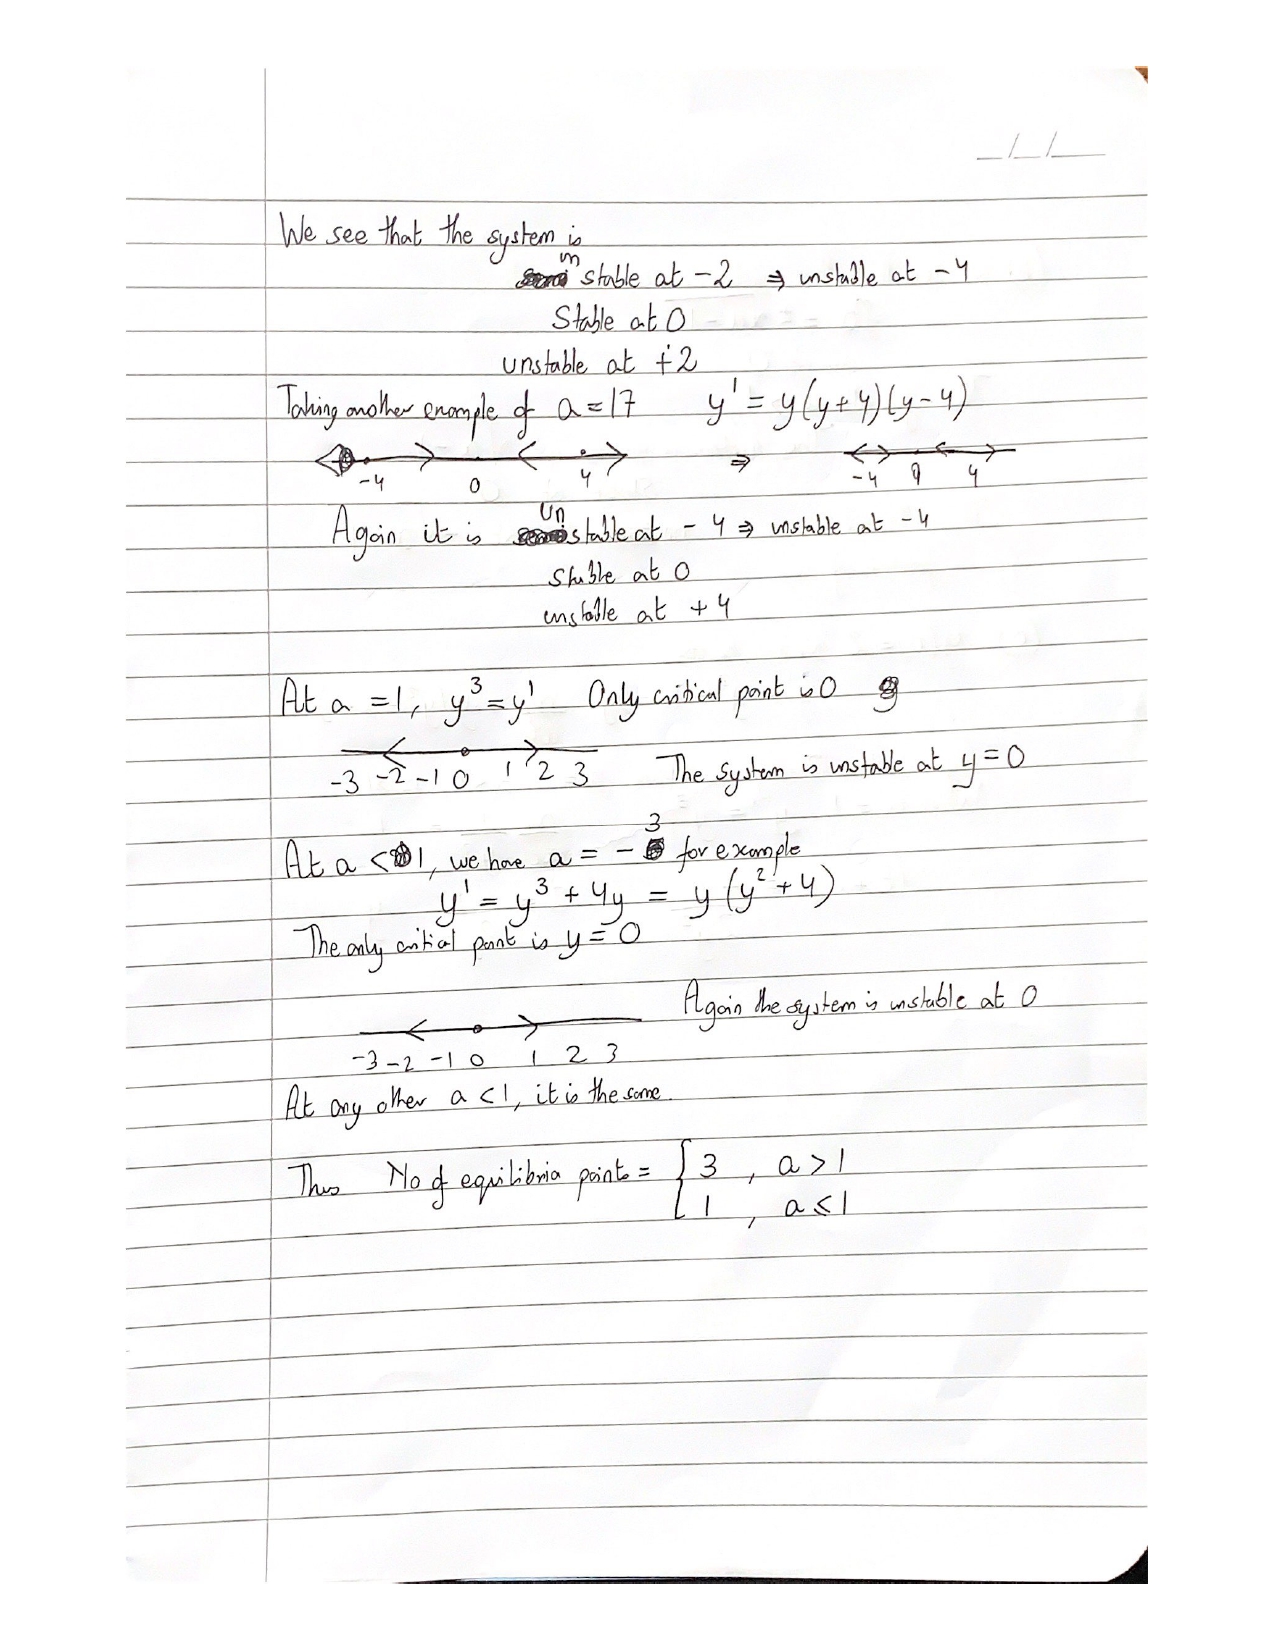 _/_/__
We see that the system is
un stable at -2 ⇒ unstable at -4
Stable at 0
unstable at +2
Taking another example of a=17 y' = y(y+4)(y-4)
-4 0 4 ⇒ -4 0 4
Again it is Un stable at -4 ⇒ unstable at -4
stable at 0
unstable at +4
At a =1, y³=y' Only critical point is 0
-3 -2 -1 0 1 2 3 The system is unstable at y=0
At a < 1, we have a = -3 for example
y' = y³ + 4y = y(y²+4)
The only critical point is y = 0
Again the system is unstable at 0
-3 -2 -1 0 1 2 3
At any other a<1, it is the same.
Thus No of equilibria points = { 3 , a > 1
1 , a ≤ 1